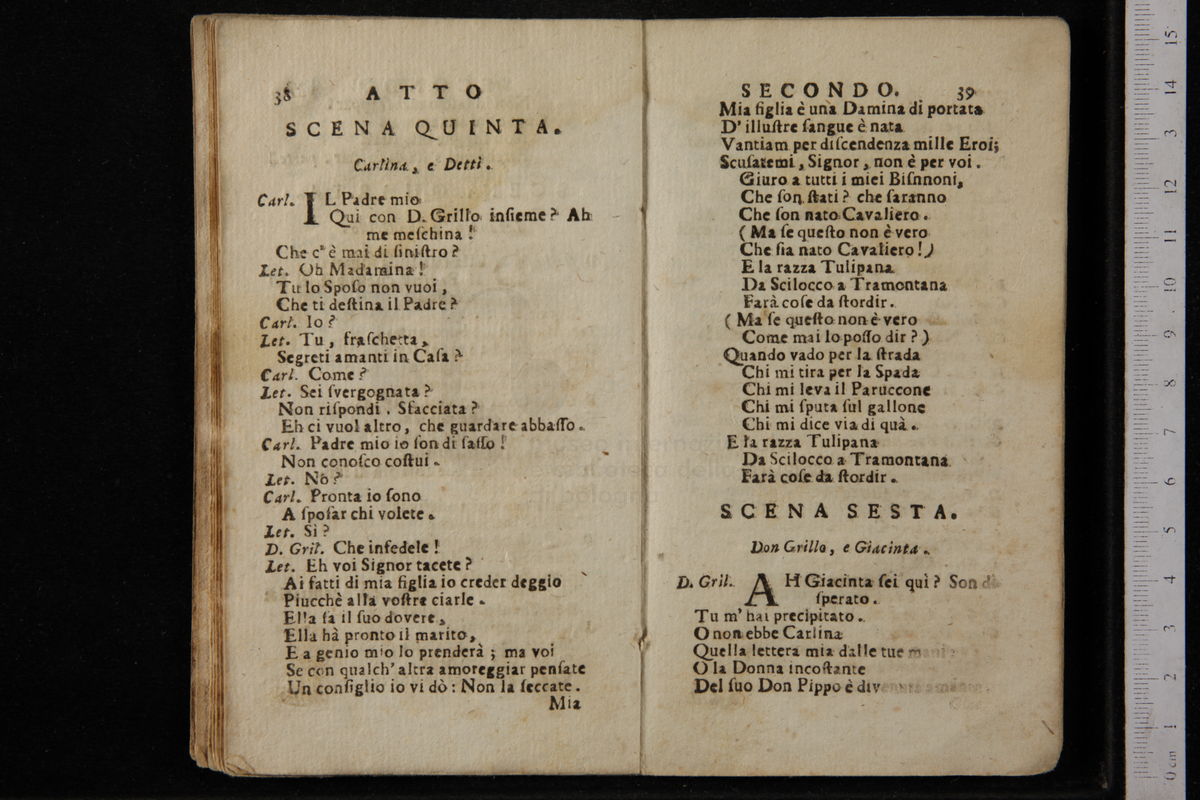 38 ATTO
SCENA QUINTA.
Carlina, e Detti.
Carl. IL Padre mio
Qui con D. Grillo insieme? Ah
me meschina!
Che c'è mai di sinistro?
Let. Oh Madamina!
Tu lo Sposo non vuoi,
Che ti destina il Padre?
Carl. Io?
Let. Tu, fraschetta,
Segreti amanti in Casa?
Carl. Come?
Let. Sei svergognata?
Non rispondi. Sfacciata?
Eh ci vuol altro, che guardare abbasso.
Carl. Padre mio io son di sasso!
Non conosco costui.
Let. Nò?
Carl. Pronta io sono
A sposar chi volete.
Let. Si?
D. Gril. Che infedele!
Let. Eh voi Signor tacete?
Ai fatti di mia figlia io creder deggio
Piucchè alla vostre ciarle.
Ella fa il suo dovere,
Ella hà pronto il marito,
E a genio mio lo prenderà; ma voi
Se con qualch'altra amoreggiar pensate
Un consiglio io vi dò: Non la seccate.
Mia
SECONDO. 39
Mia figlia è una Damina di portata
D'illustre sangue è nata
Vantiam per discendenza mille Eroi;
Scusatemi, Signor, non è per voi.
Giuro a tutti i miei Bisnnoni,
Che son stati? che saranno
Che son nato Cavaliero.
(Ma se questo non è vero
Che sia nato Cavaliero!)
E la razza Tulipana
Da Scilocco a Tramontana
Farà cose da stordir.
(Ma se questo non è vero
Come mai lo posso dir?)
Quando vado per la strada
Chi mi tira per la Spada
Chi mi leva il Paruccone
Chi mi sputa sul gallone
Chi mi dice via di quà.
E la razza Tulipana
Da Scilocco a Tramontana
Farà cose da stordir.
SCENA SESTA.
Don Grillo, e Giacinta.
D. Gril. AH Giacinta sei quì? Son di
sperato.
Tu m'hai precipitato.
O non ebbe Carlina
Quella lettera mia dalle tue mani?
O la Donna incostante
Del suo Don Pippo è divenuta amante.